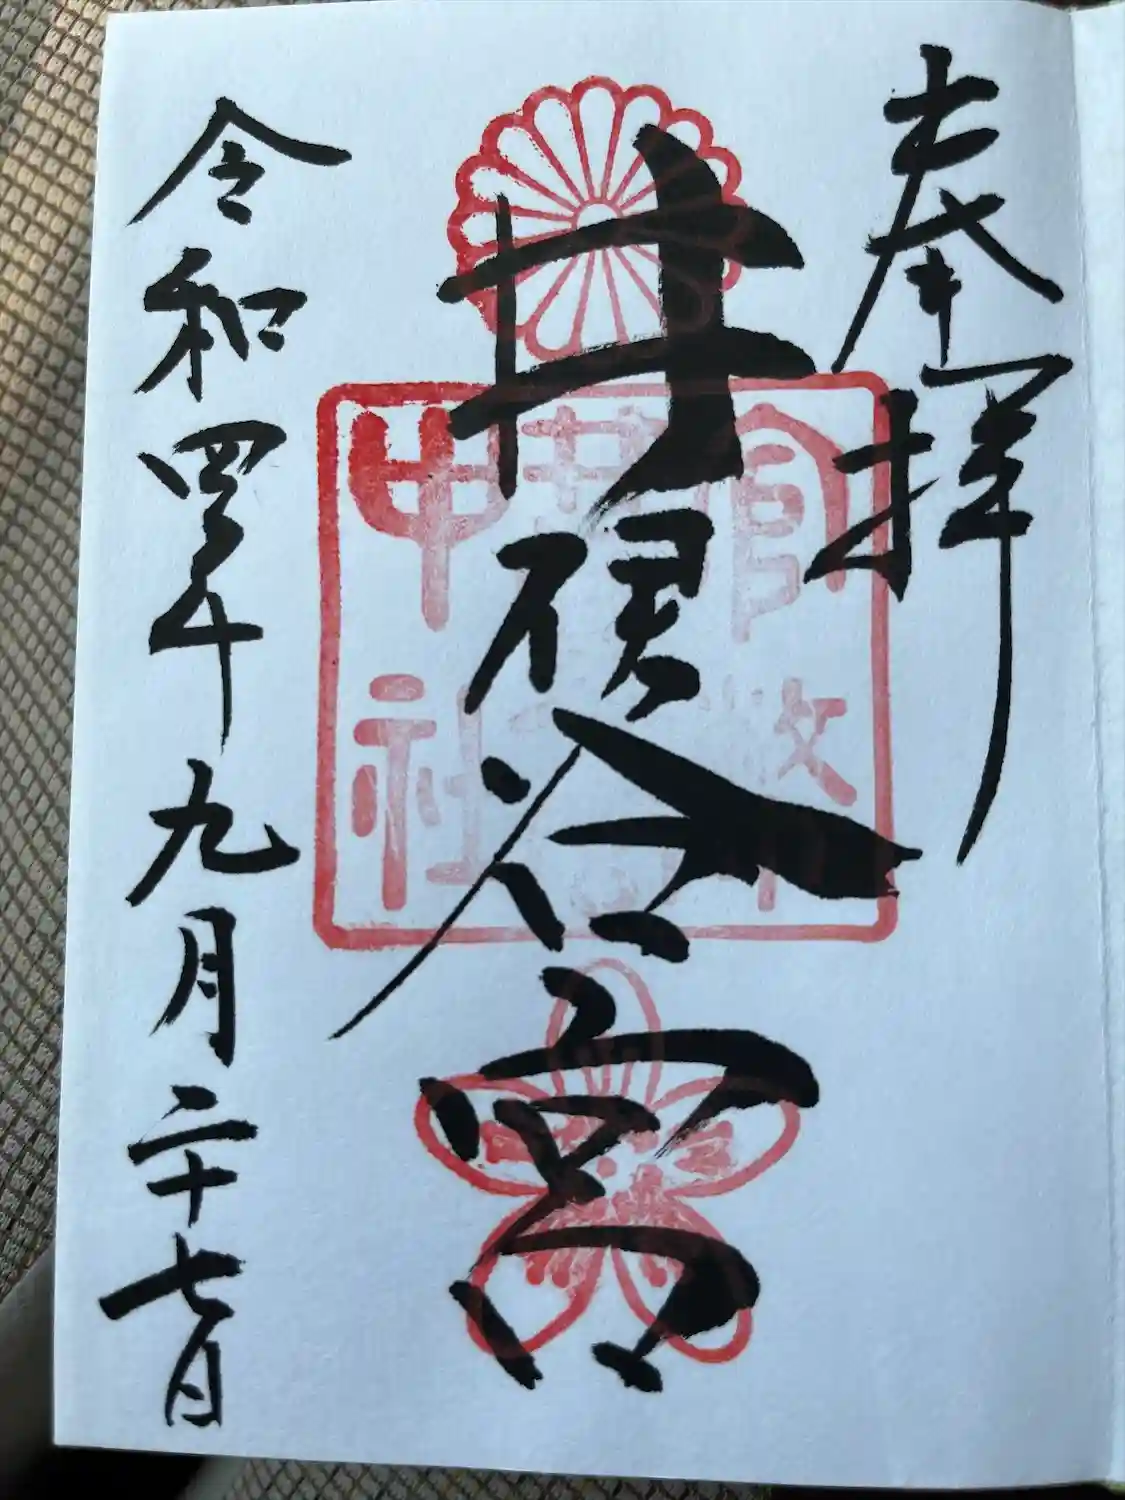 奉拝
井伊谷宮
令和四年九月二十七日
官幣
中社